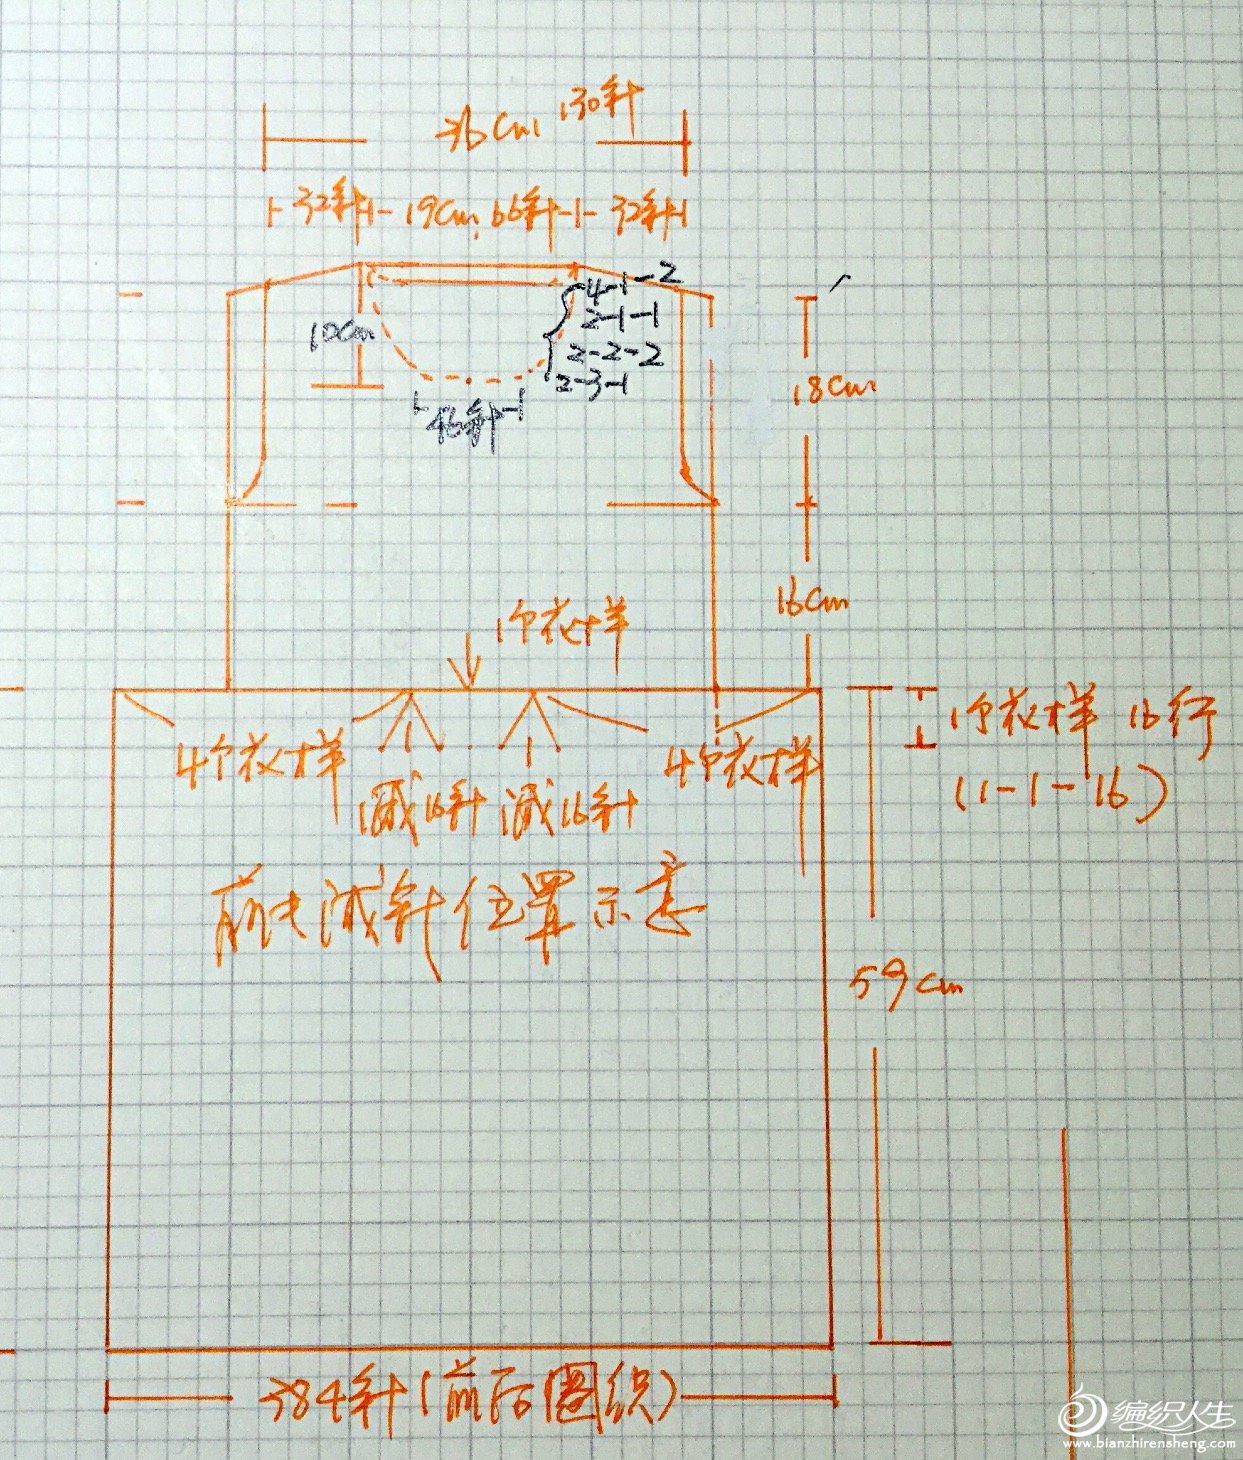 36cm 130针
32针 19cm 66针 32针
4-1-2
2-1-1
2-2-2
2-3-1
10cm
46针
18cm
16cm
1个花样
4个花样
4个花样
减16针 减16针
1个花样 16行
(1-1-16)
前片减针位置示意
59cm
384针(前后圈织)
编织人生
www.bianzhirensheng.com